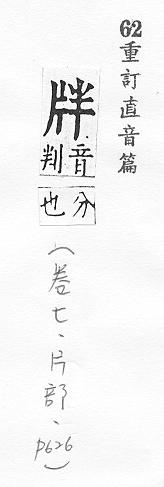 62重訂直音篇
牉
音判
分也
(卷七、片部、p626)